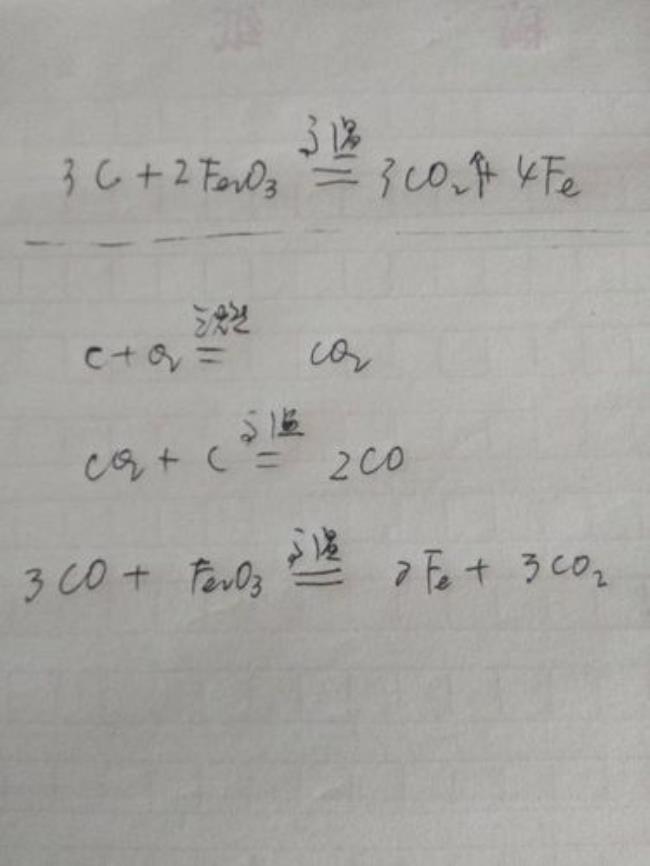 3C+2Fe₂O₃ 高温 = 3CO₂↑+ 4Fe
C+O₂ 点燃 = CO₂
CO₂ + C 高温 = 2CO
3CO + Fe₂O₃ 高温 = 2Fe + 3CO₂